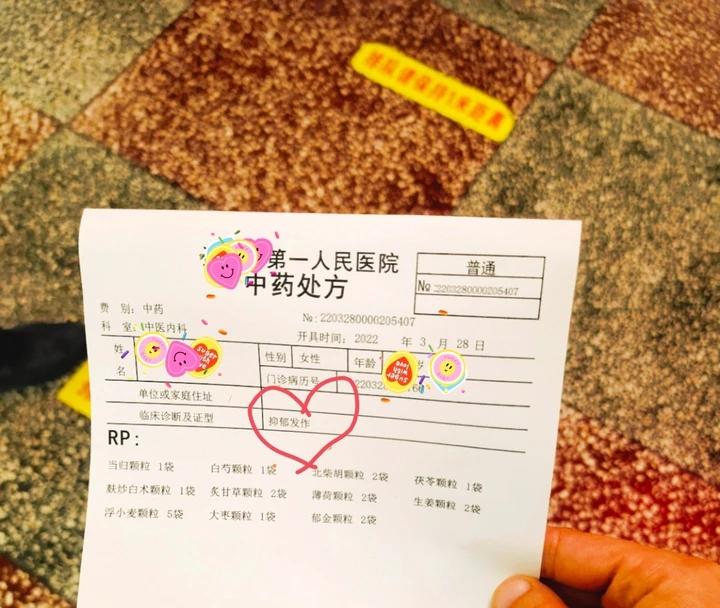 请您保持1米距离
第一人民医院
中药处方
普通
№ 2203280000205407
№: 2203280000205407
费 别: 中药
科 室: 中医内科
开具时间: 2022 年 3 月 28 日
姓名
性别 女性 年龄
门诊病历号
单位或家庭住址
临床诊断及证型 抑郁发作
RP:
当归颗粒 1袋 白芍颗粒 1袋 北柴胡颗粒 2袋 茯苓颗粒 1袋
麸炒白术颗粒 1袋 炙甘草颗粒 2袋 薄荷颗粒 2袋 生姜颗粒 2袋
浮小麦颗粒 5袋 大枣颗粒 1袋 郁金颗粒 2袋